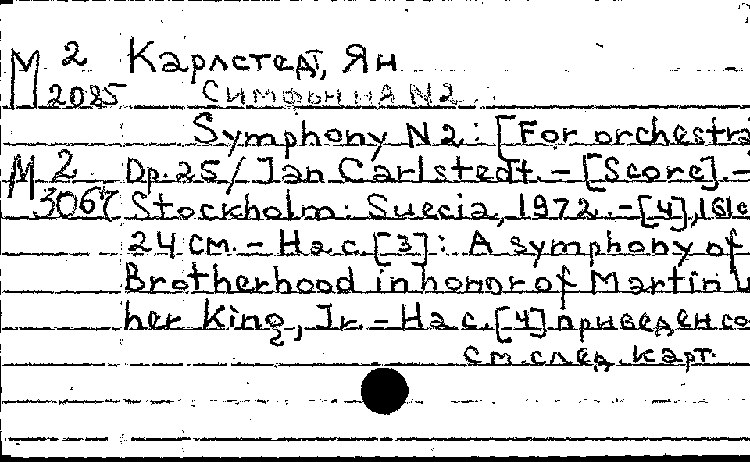 М 2 Карлстедт, Ян
2085 Симфония N2
Symphony N2: [For orchestra
М 2 Op. 25 / Jan Carlstedt. – [Score]. –
3067 Stockholm: Suecia, 1972. – [4], 161с
24 см. – На с. [3]: A symphony of
Brotherhood in honor of Martin Lu
her King, Jr. – На с. [4] приведен со
см. след. карт.